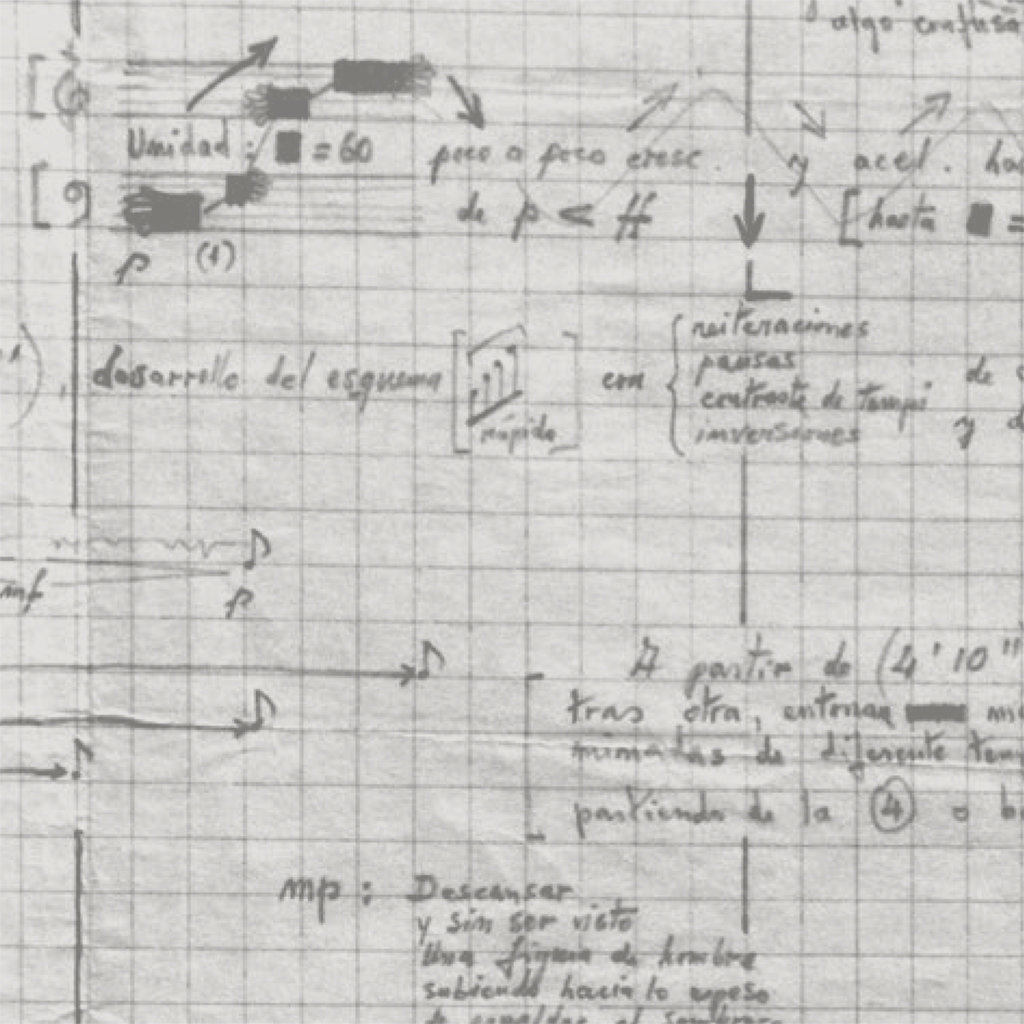 algo confusa
[6
Unidad : = 60 poco a poco cresc. y acel. ha
[9] de p < ff [hasta =
p (1)
reiteraciones
pausas
desarrollo del esquema [ ] con de
contraste de tempi
rápido inversiones y
mf
p
A partir de (4'10"
tras otra, entonan
mimadas de diferente
partiendo de la 4 o
mp : Descansar
y sin ser visto
Una figura de hombre
subiendo hacia lo espeso
de espaldas el sombrero